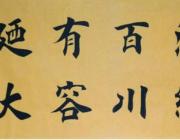 百川
有容
廼大